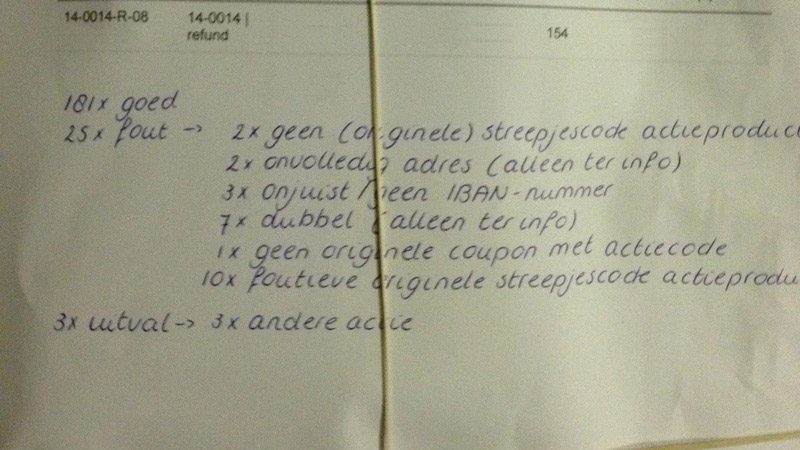 14-0014-R-08 14-0014 | 154
refund
181x goed
25x fout -> 2x geen (originele) streepjescode actieproduct
2x onvolledig adres (alleen ter info)
3x onjuist/geen IBAN-nummer
7x dubbel (alleen ter info)
1x geen originele coupon met actiecode
10x foutieve originele streepjescode actieprodu
3x uitval -> 3x andere actie